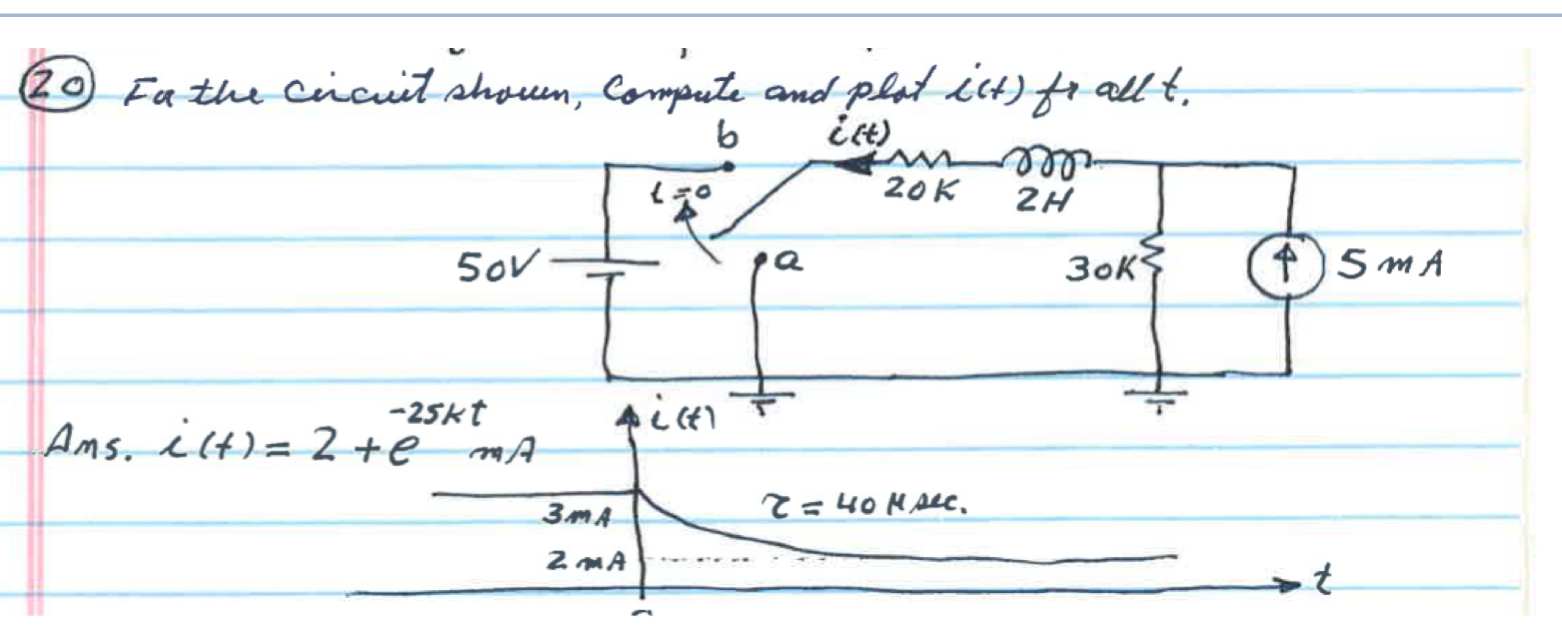 20 For the circuit shown, Compute and plot i(t) for all t.
b i(t)
t=0 20K 2H
50V a 30K 5 mA
-25kt i(t)
Ans. i(t) = 2 + e mA
3mA τ = 40 μ sec.
2 mA
t